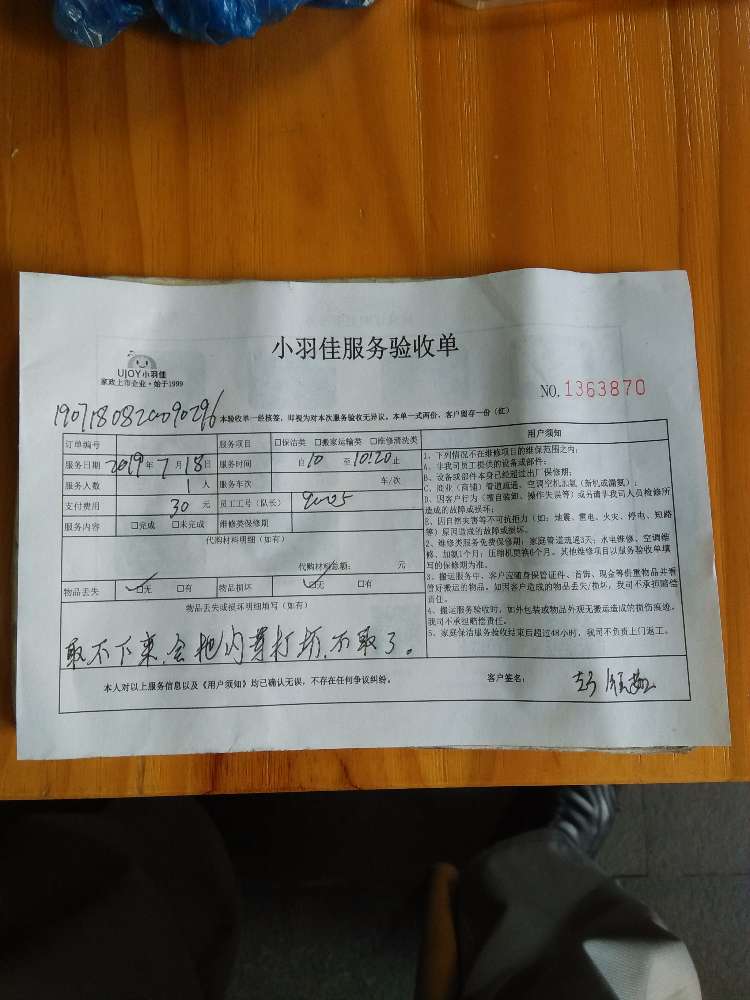 小羽佳服务验收单
UJOY小羽佳
家政上市企业·始于1999
NO.1363870
本验收单一经核签，即视为对本次服务验收无异议。本单一式两份，客户留存一份（红）
订单编号 服务项目 □保洁类 □搬家运输类 □维修清洗类
服务日期 2019年7月18日 服务时间 自10至10:20止
服务人数 1人 服务车次 车/次
支付费用 30元 员工工号（队长）
服务内容 □完成 □未完成 维修类保修期
代购材料明细（如有）
代购材料总额： 元
物品丢失 □无 □有 物品损坏 □无 □有
物品丢失或损坏明细填写（如有）
取不下来,会把内胆打坏,不取了。
用户须知
1、下列情况不在维修项目的维保范围之内：
A、非我司员工提供的设备或部件；
B、设备或部件本身已经超过出厂保修期；
C、商业（商铺）管道疏通、空调空机加氟（新机或漏氟）；
D、因客户行为（擅自装卸、操作失误等）或另请非我司人员检修所
造成的故障或损坏；
E、因自然灾害等不可抗拒力（如：地震、雷电、火灾、停电、短路
等）原因造成的故障或损坏。
2、维修类服务免费保修期：家庭管道疏通3天；水电维修、空调维
修、加氟1个月；压缩机更换6个月。其他维修项目以服务验收单填
写的保修期为准。
3、搬运服务中，客户应随身保管证件、首饰、现金等贵重物品并看
管好搬运的物品。如因客户造成的物品丢失/损坏，我司不承担赔偿
责任。
4、搬运服务验收时，如外包装或物品外观无搬运造成的损伤痕迹，
我司不承担赔偿责任。
5、家庭保洁服务验收结束后超过48小时，我司不负责上门返工。
本人对以上服务信息以及《用户须知》均已确认无误，不存在任何争议纠纷。 客户签名：